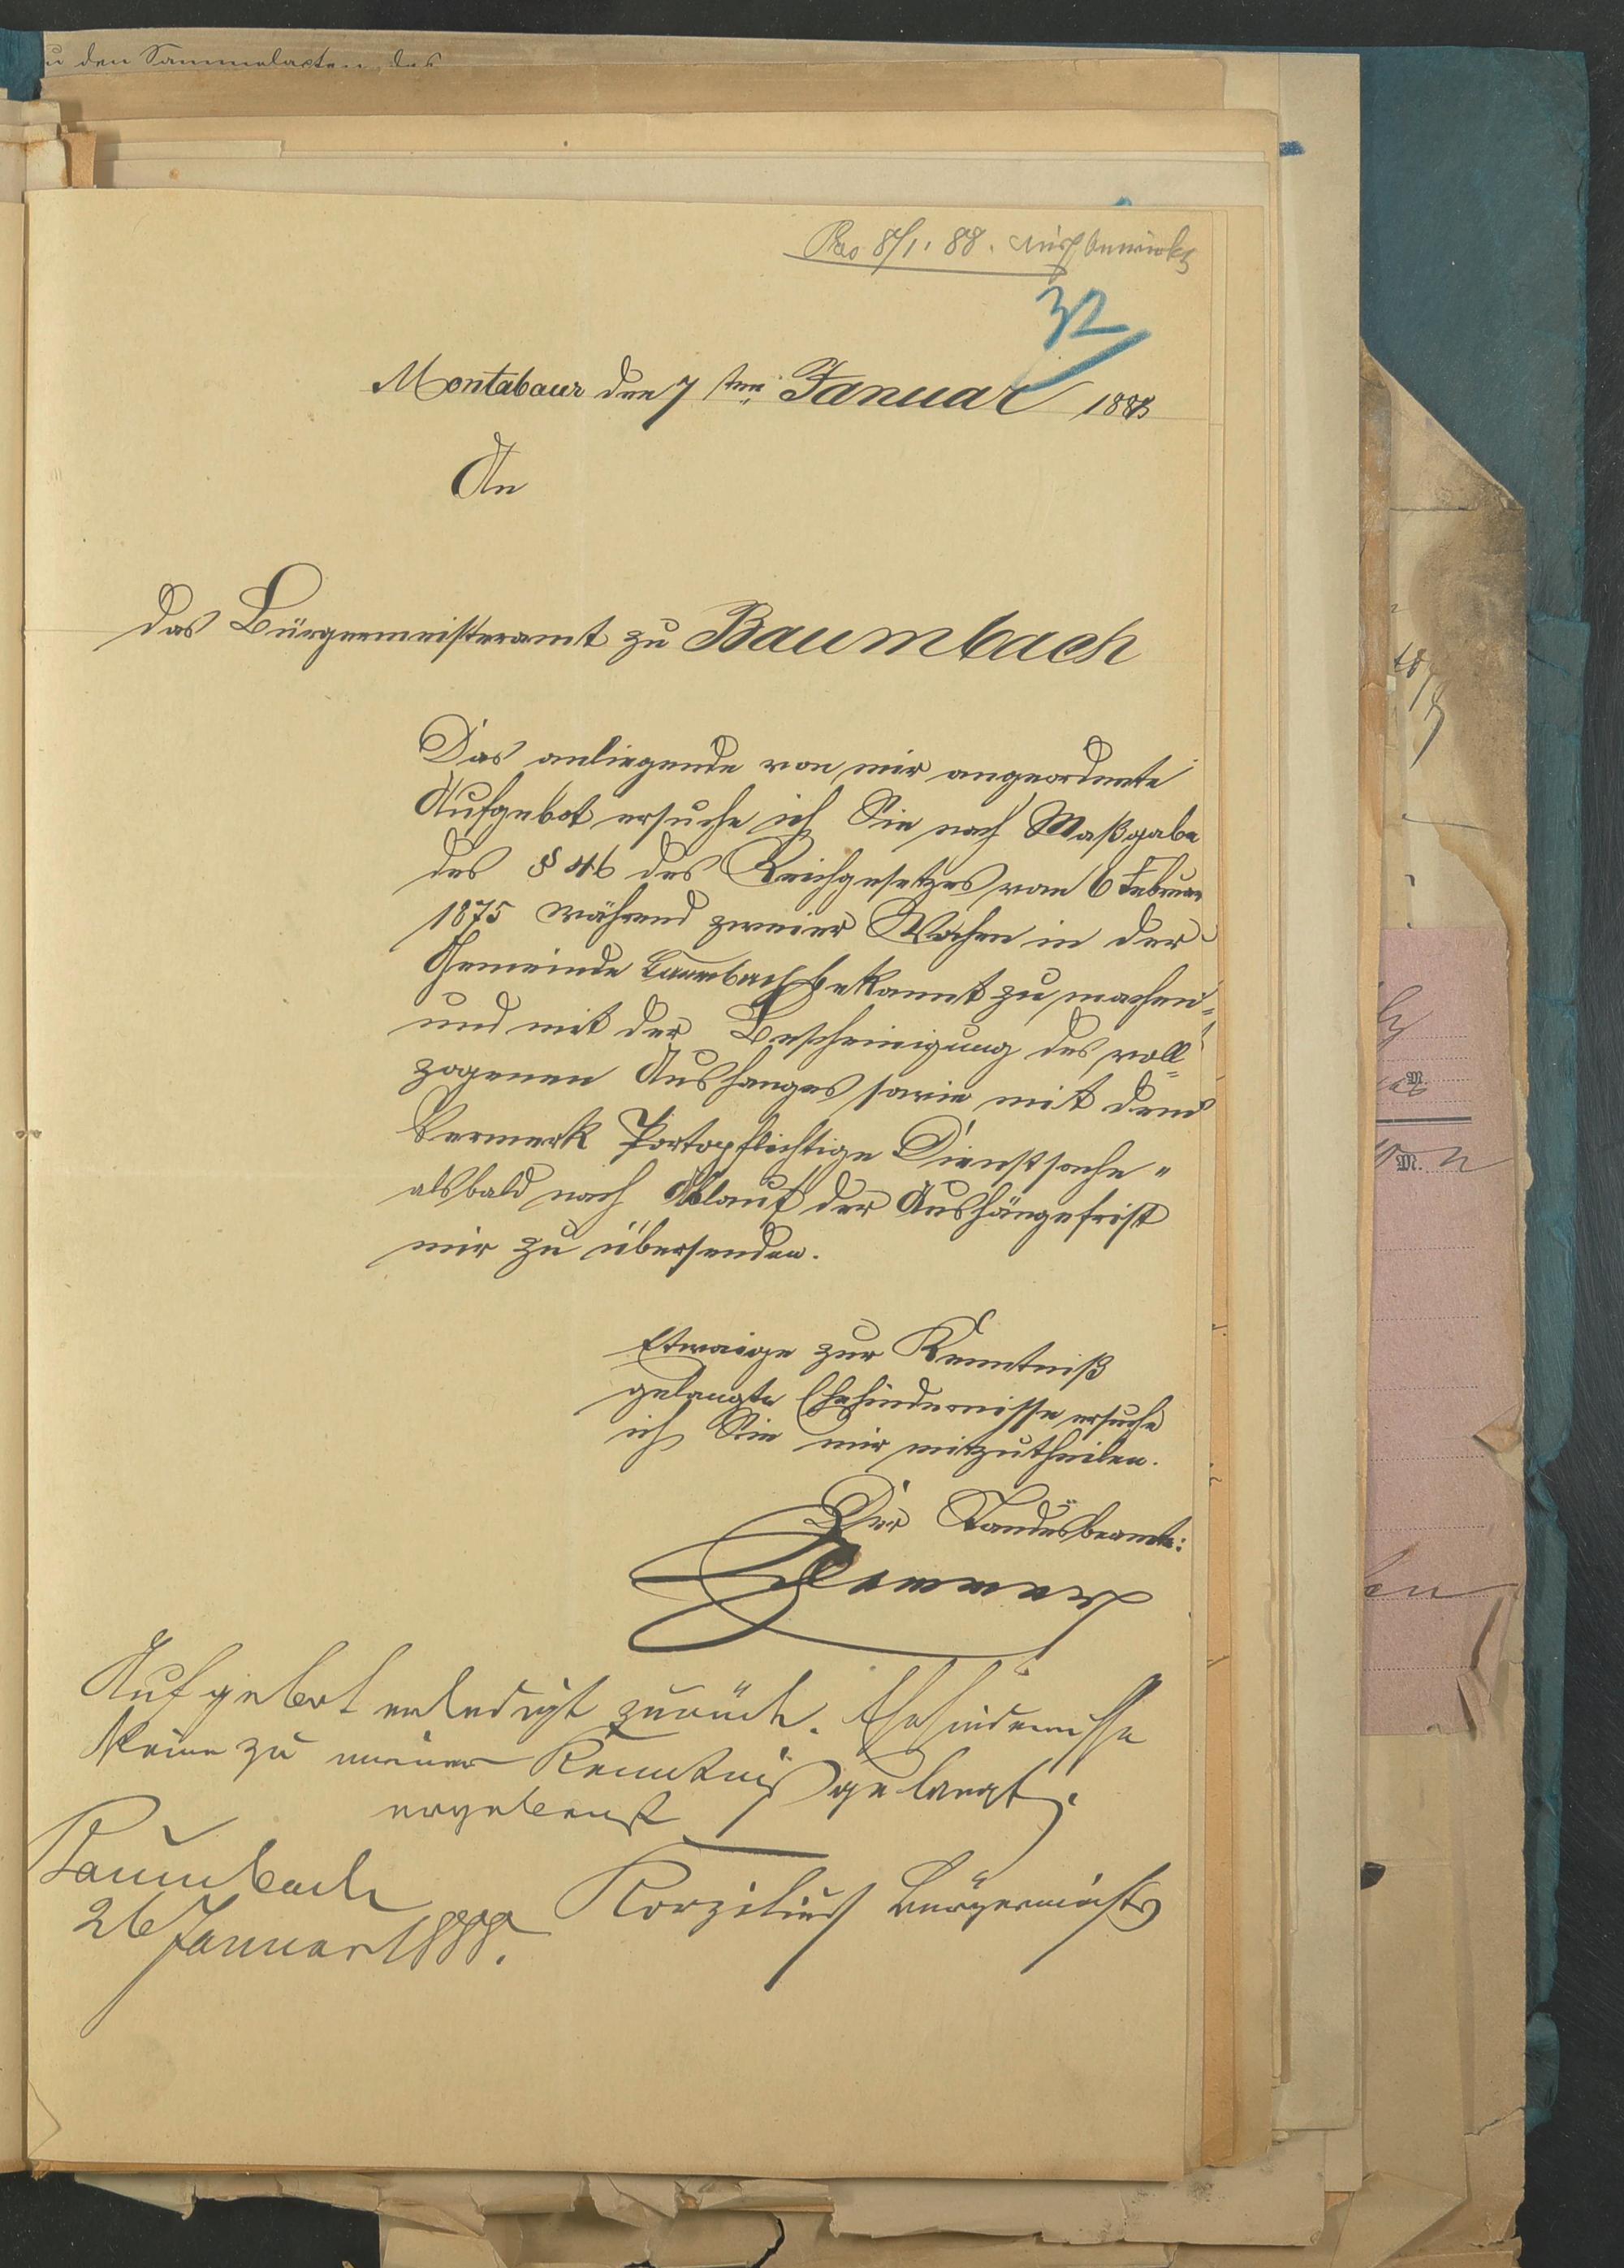 u den Sammelacten des
8/1. 88.
32
Montabaur den 7 ten Januar 1888
An
das Bürgermeisteramt zu Baumbach
Das anliegende von mir angeordnete
Aufgebot ersuche ich Sie nach Maßgabe
des § 46 des Reichgesetzes vom 6 Februar
1875 während zweier Wochen in der
Gemeinde Baumbach bekannt zu machen
und mit der Bescheinigung des voll=
zogenen Aushanges sowie mit dem
Vermerk Portopflichtige Dienstsache "
alsbald nach Ablauf der Aushängefrist
mir zu übersenden.
Etwaige zur Kenntniß
gelangte Ehehindernisse ersuche
ich Sie mir mitzutheilen.
Der Standesbeamte:
Aufgebot erledigt zurück. Ehehindernisse
keine zu meiner Kenntniß gelangt.
ergebenst
Baumbach
26 Januar 1888.
Korzilius Bürgermeister
M.
M.